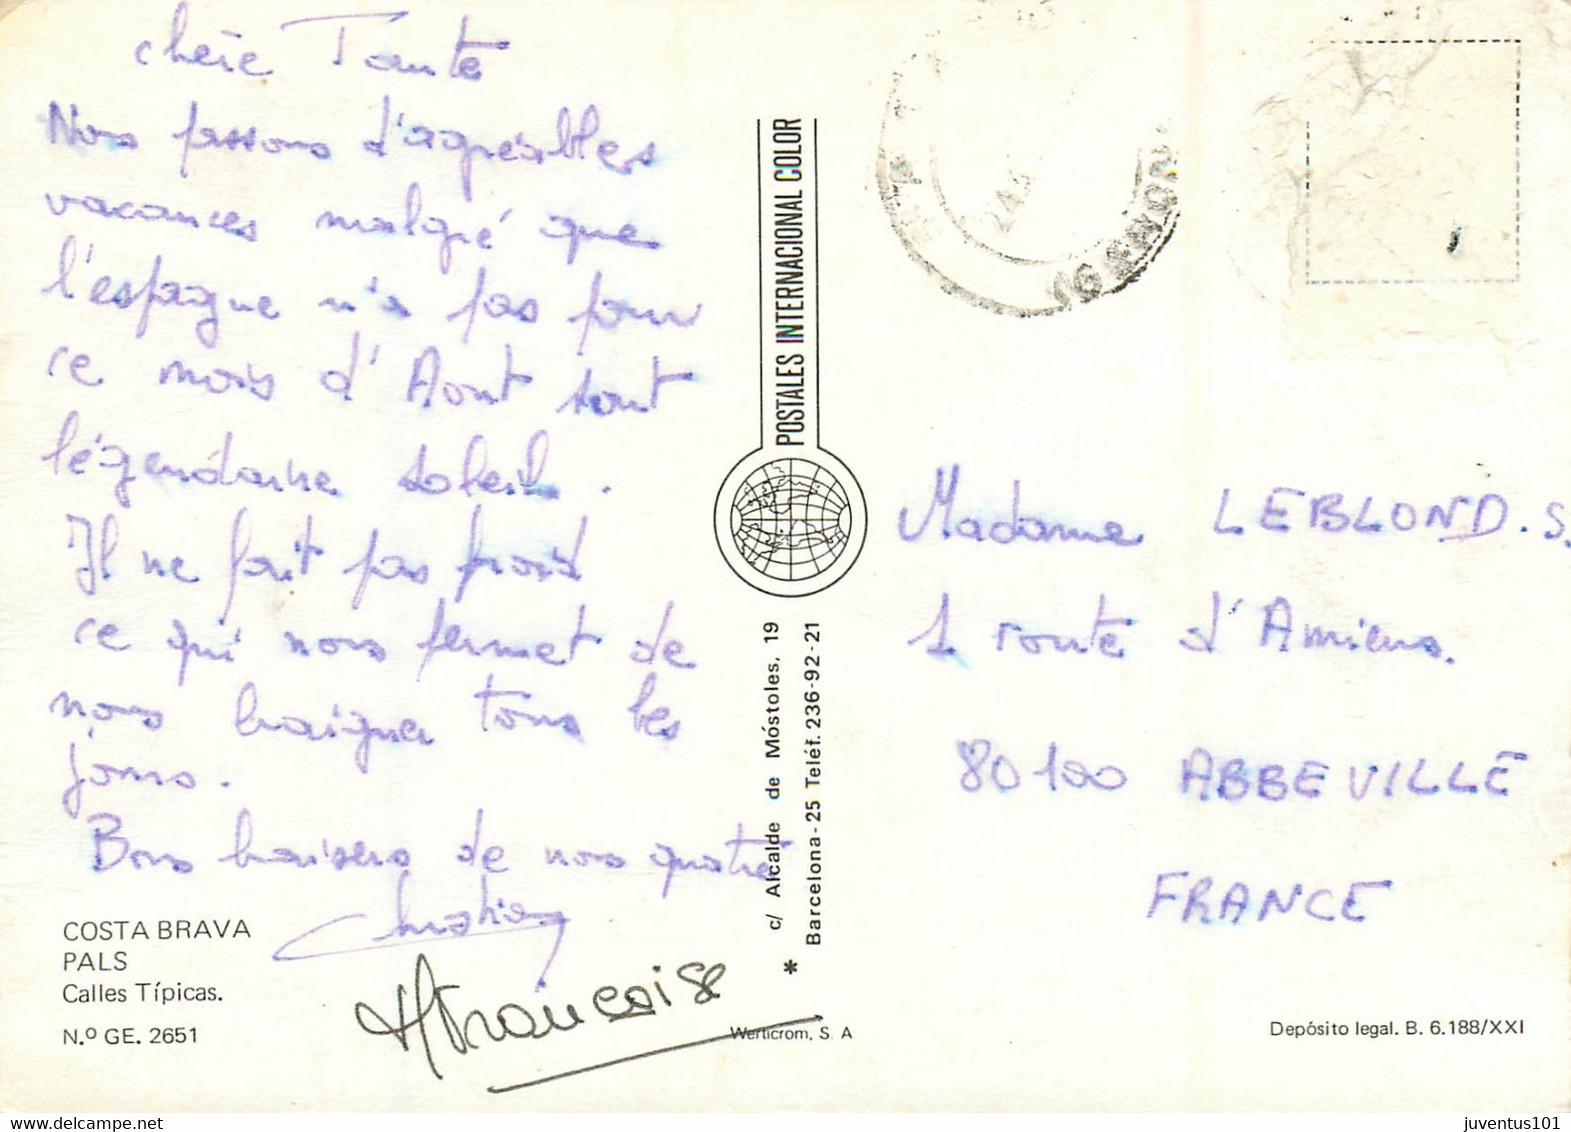 chère Tante
Nous passons d'agréables
vacances malgré que
l'espagne n'a pas pour
ce mois d'Aout tout
légendaire soleil.
Il ne fait pas froid
ce qui nous permet de
nous baigner tous les
jours.
Bons baisers de nous quatre
Françoise
COSTA BRAVA
PALS
Calles Típicas.
N.º GE. 2651
POSTALES INTERNACIONAL COLOR
c/ Alcalde de Móstoles, 19
Barcelona-25 Teléf. 236-92-21
*
Werticrom, S. A
Madame LEBLOND.S.
1 route d'Amiens.
80100 ABBEVILLE
FRANCE
Depósito legal. B. 6.188/XXI
juventus101